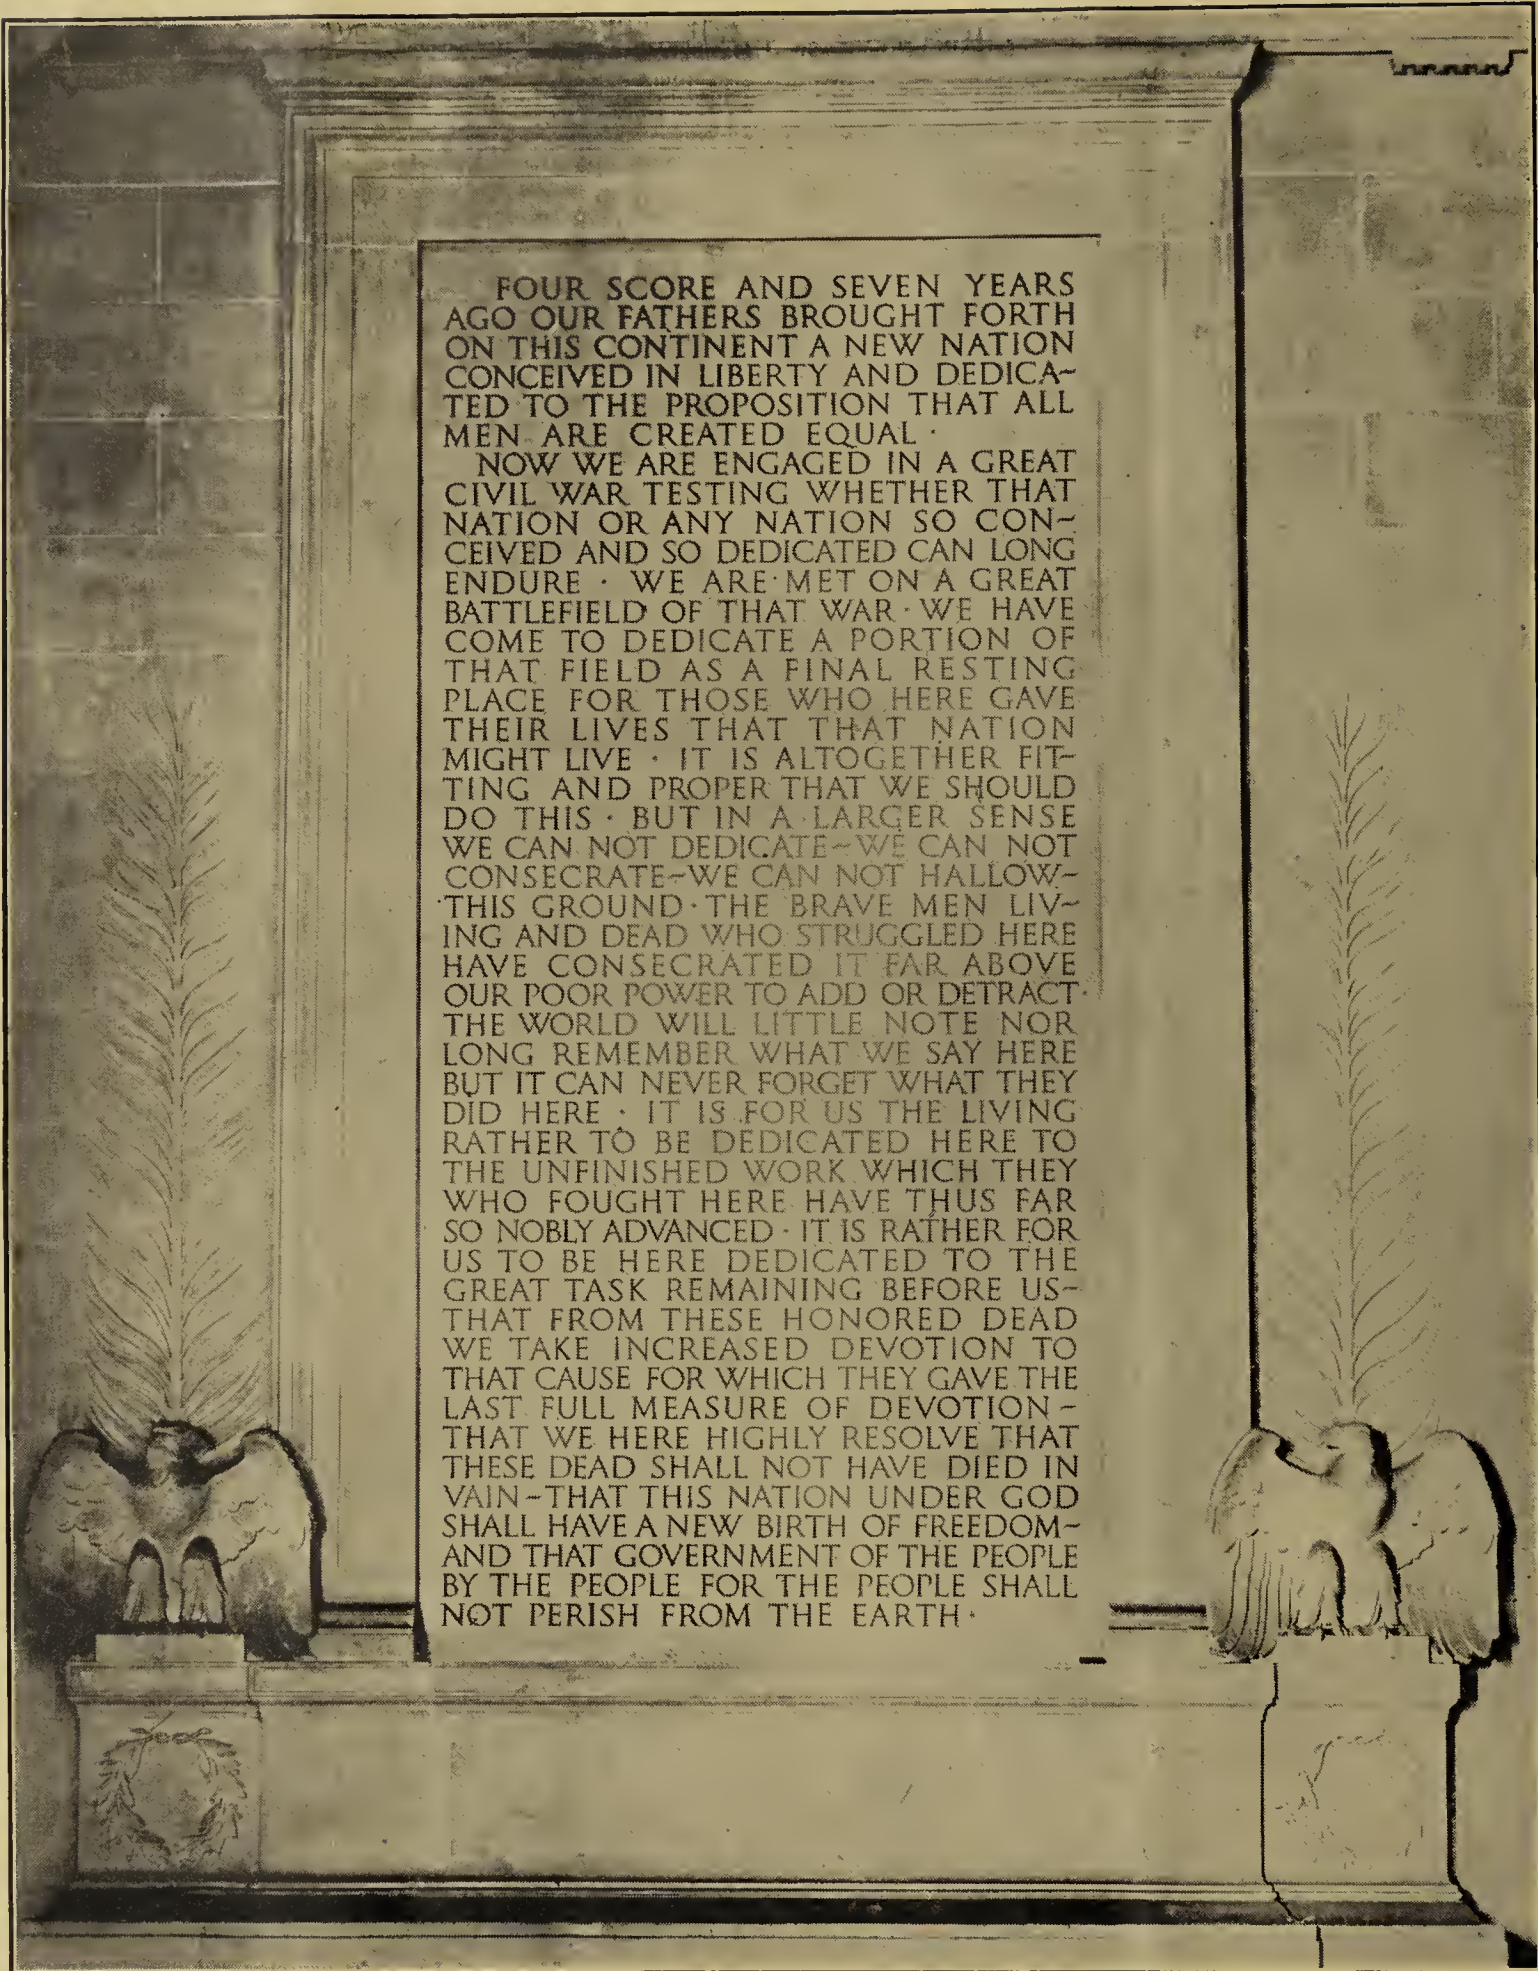 FOUR SCORE AND SEVEN YEARS
AGO OUR FATHERS BROUGHT FORTH
ON THIS CONTINENT A NEW NATION
CONCEIVED IN LIBERTY AND DEDICA~
TED TO THE PROPOSITION THAT ALL
MEN ARE CREATED EQUAL ·
NOW WE ARE ENGAGED IN A GREAT
CIVIL WAR TESTING WHETHER THAT
NATION OR ANY NATION SO CON~
CEIVED AND SO DEDICATED CAN LONG
ENDURE · WE ARE MET ON A GREAT
BATTLEFIELD OF THAT WAR · WE HAVE
COME TO DEDICATE A PORTION OF
THAT FIELD AS A FINAL RESTING
PLACE FOR THOSE WHO HERE GAVE
THEIR LIVES THAT THAT NATION
MIGHT LIVE · IT IS ALTOGETHER FIT~
TING AND PROPER THAT WE SHOULD
DO THIS · BUT IN A LARGER SENSE
WE CAN NOT DEDICATE~WE CAN NOT
CONSECRATE~WE CAN NOT HALLOW~
THIS GROUND · THE BRAVE MEN LIV~
ING AND DEAD WHO STRUGGLED HERE
HAVE CONSECRATED IT FAR ABOVE
OUR POOR POWER TO ADD OR DETRACT·
THE WORLD WILL LITTLE NOTE NOR
LONG REMEMBER WHAT WE SAY HERE
BUT IT CAN NEVER FORGET WHAT THEY
DID HERE · IT IS FOR US THE LIVING
RATHER TO BE DEDICATED HERE TO
THE UNFINISHED WORK WHICH THEY
WHO FOUGHT HERE HAVE THUS FAR
SO NOBLY ADVANCED · IT IS RATHER FOR
US TO BE HERE DEDICATED TO THE
GREAT TASK REMAINING BEFORE US~
THAT FROM THESE HONORED DEAD
WE TAKE INCREASED DEVOTION TO
THAT CAUSE FOR WHICH THEY GAVE THE
LAST FULL MEASURE OF DEVOTION ~
THAT WE HERE HIGHLY RESOLVE THAT
THESE DEAD SHALL NOT HAVE DIED IN
VAIN~THAT THIS NATION UNDER GOD
SHALL HAVE A NEW BIRTH OF FREEDOM~
AND THAT GOVERNMENT OF THE PEOPLE
BY THE PEOPLE FOR THE PEOPLE SHALL
NOT PERISH FROM THE EARTH ·